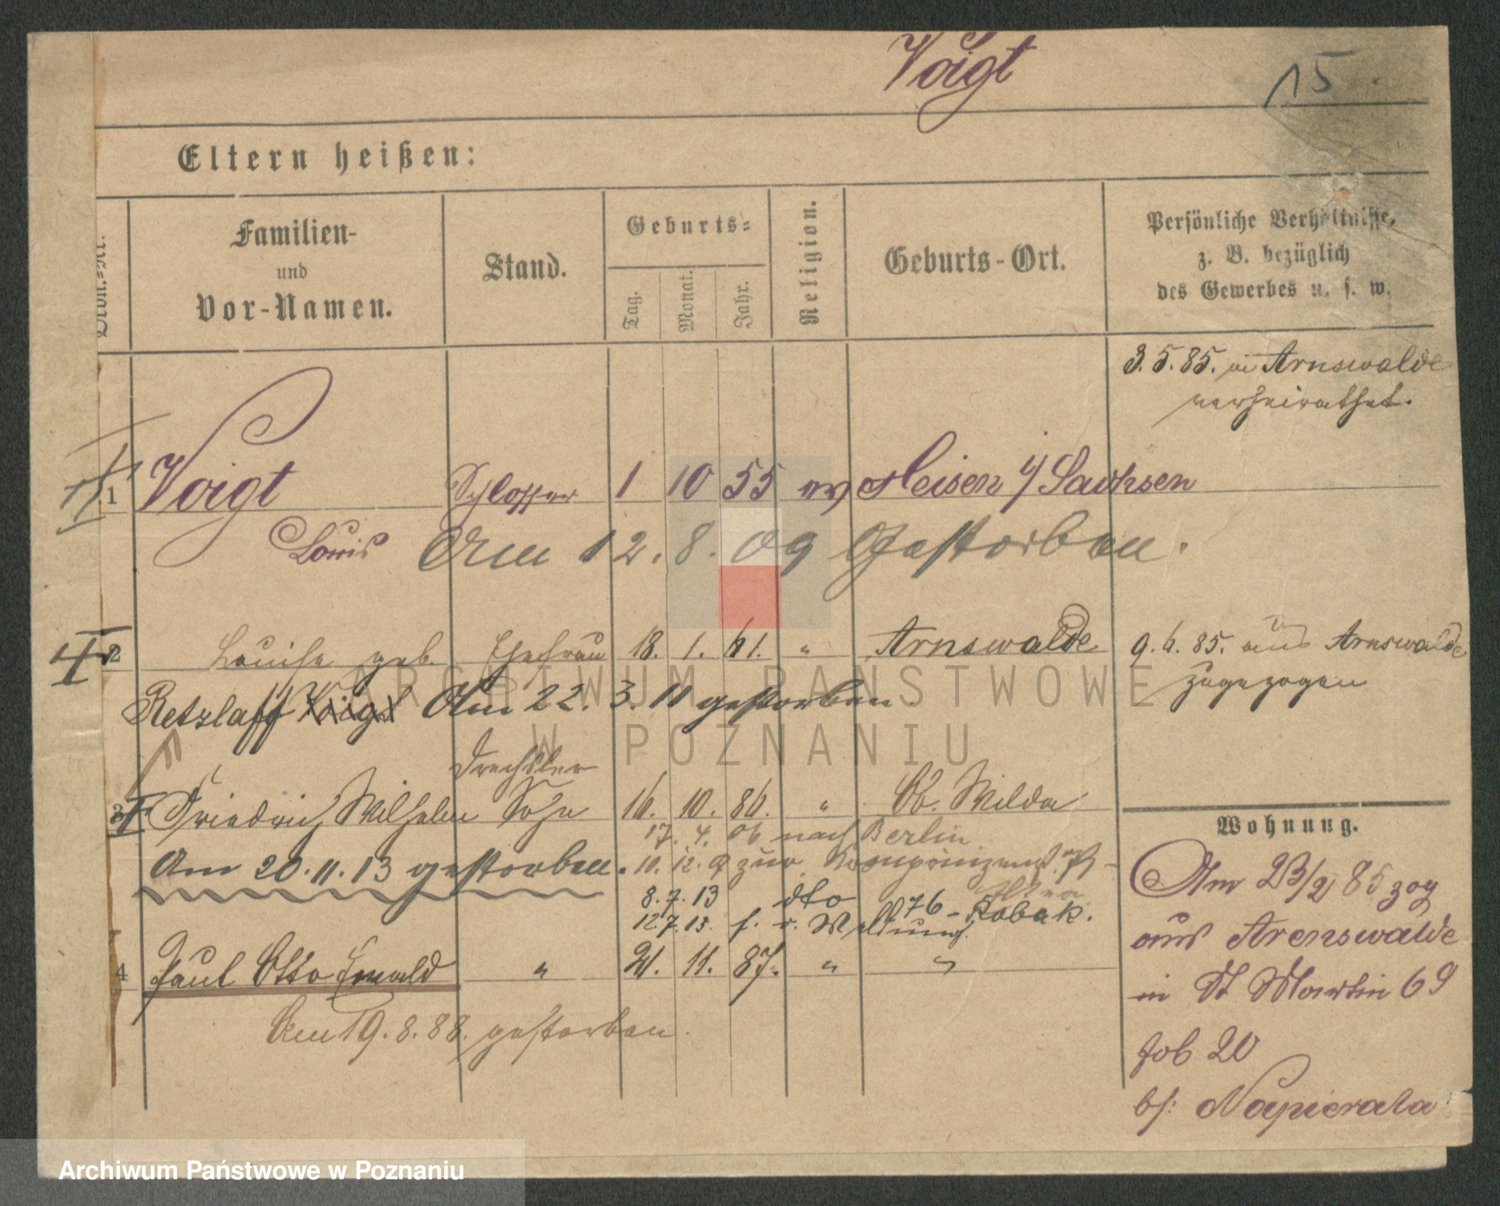 Voigt
15.
Eltern heißen:
Ordn.-Nr.
Familien-
und
Vor-Namen.
Stand.
Geburts-
Tag.
Monat.
Jahr.
Religion.
Geburts-Ort.
Persönliche Verhältnisse,
z. B. bezüglich
des Gewerbes u. s. w.
3.5.85. in Arnswalde
verheirathet.
1 Voigt Schlosser 1 10 55 ev Meisen i/ Sachsen
Louis Am 12.8.09 Gestorben.
2 Louise geb. Ehefrau 18. 1. 61. " Arnswalde 9.6.85. aus Arnswalde
zugezogen
Retzlaff Voigt Am 22. 3. 11 gestorben
Drechsler
3 Friedrich Wilhelm Sohn 16. 10. 86. " Ob. Wilda
17. 4. 06 nach Berlin
Am 20.11.13 gestorben. 10. 12. 9 zur
8.7.13 dto 76 - Kobak.
12.7.13. f. r.
4 Paul Otto Ewald " 21. 11. 87. " "
Am 19.8.88. gestorben.
Wohnung.
Am 23/2 85 zog
aus Arenswalde
in St Martin 69
20
bei: Napierala
ARCHIWUM PAŃSTWOWE
W POZNANIU
Archiwum Państwowe w Poznaniu